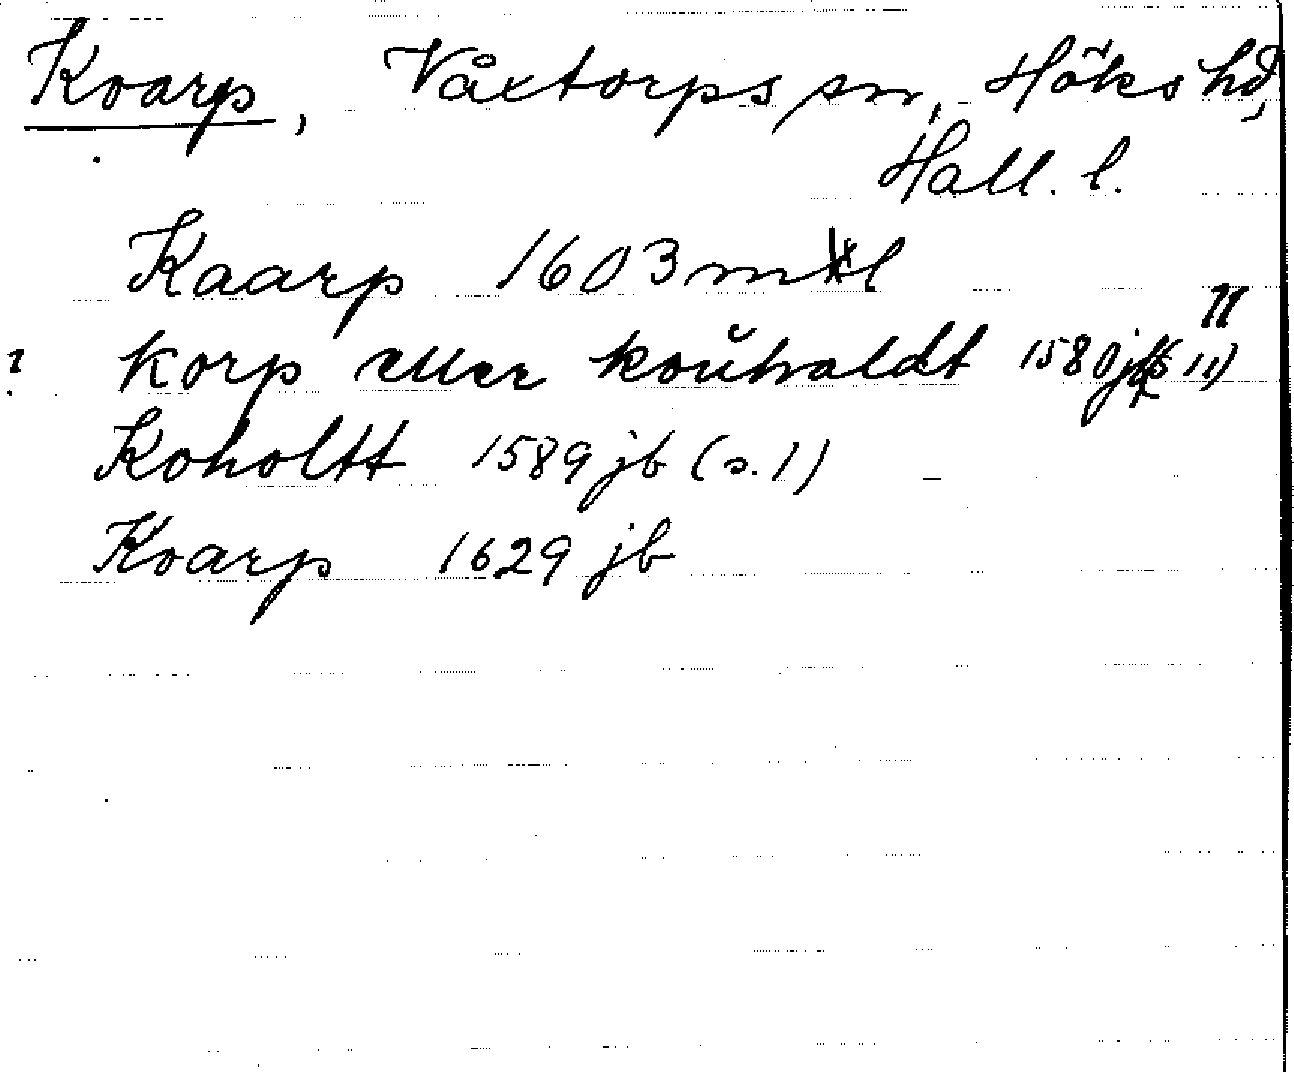 Koarp, Våxtorps sn, Höks hd,
Hall. l.
Kaarp 1603 mtl
? korp eller kouhaldt 1580 jb (s 11)
Koholtt 1589 jb (s. 1)
Koarp 1629 jb